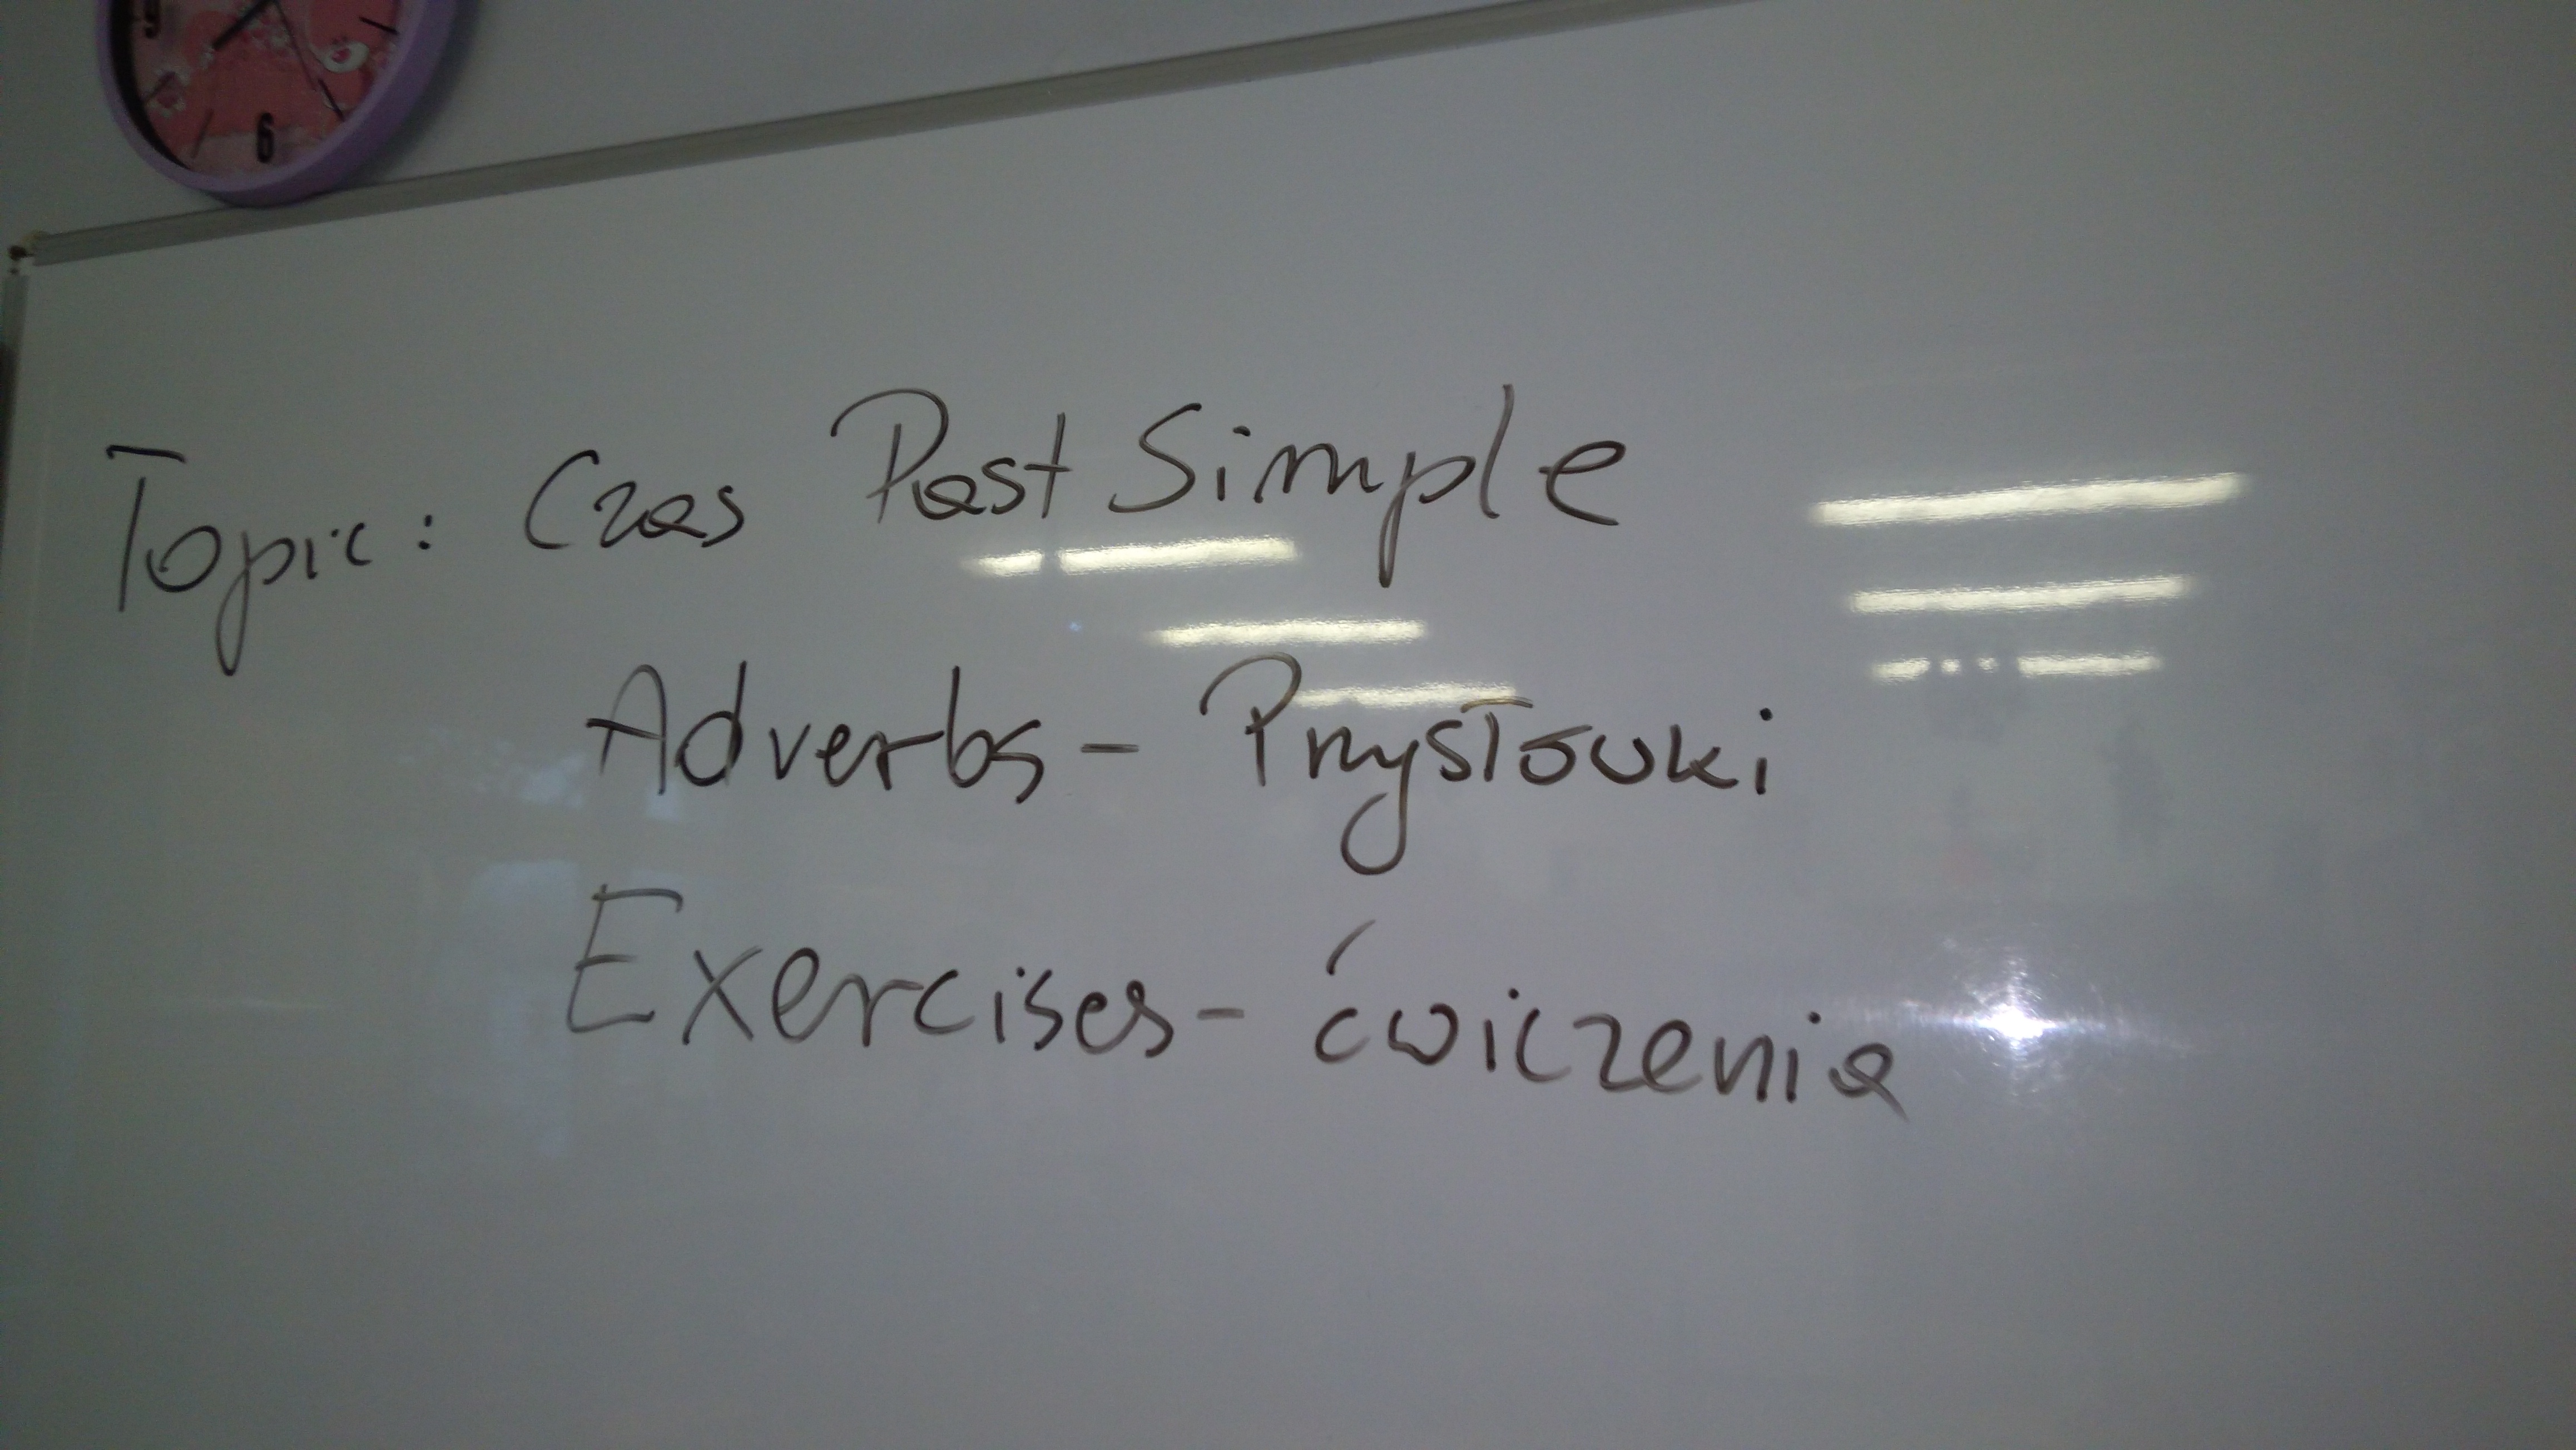 9
6
Topic: Czas Past Simple
Adverbs - Przysłówki
Exercises - ćwiczenia